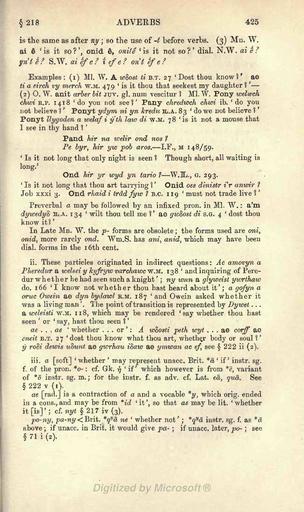 § 218 ADVERBS 425
is the same as after ny; so the use of -d before verbs. (3) Mn. W.
ai ê 'is it so?', onid ê, onitê 'is it not so?' dial. N.W. ai ê?
yn't ê? S.W. ai êf e? i ef e? on't êf e?
Examples: (1) Ml. W. A wðost ti B.T. 27 'Dost thou know?' ae
ti a eirch vy merch W.M. 479 'is it thou that seekest my daughter?'—
(2) O. W. anit arber bit JUV. gl. num vescitur? Ml. W. Pony welwch
chwi R.P. 1418 'do you not see?' Pany chredwch chwi ib. 'do you
not believe?' Ponyt ydym ni yn kredu IL.A. 83 'do we not believe?'
Ponyt llygoden a welaf i y'th law di W.M. 78 'is it not a mouse that
I see in thy hand?'
Pand hir na welir ond nos?
Pe byr, hir yw pob aros.—I.F., M 148/59.
'Is it not long that only night is seen? Though short, all waiting is
long.'
Ond hir yr wyd yn tario?—W.IL., G. 293.
'Is it not long that thou art tarrying?' Onid oes dinistr i'r anwir?
Job xxxi 3. Ond rhaid i trêd fyw? B.C. 119 'must not trade live?'
Preverbal a may be followed by an infixed pron. in Ml. W.: a'm
dywedyð IL.A. 134 'wilt thou tell me?' ae gwðost di S.G. 4 'dost thou
know it?'
In Late Mn. W. the p- forms are obsolete; the forms used are oni,
onid, more rarely ond. Wm.S. has ani, anid, which may have been
dial. forms in the 16th cent.
ii. These particles originated in indirect questions: Ac amovyn a
Pheredur a welei y kyfryw varchawc W.M. 138 'and inquiring of Pere-
dur whether he had seen such a knight'; ny wnn a glyweist ywrthaw
do. 166 'I know not whether thou hast heard about it'; a gofyn a
oruc Owein ae dyn bydawl R.M. 187 'and Owein asked whether it
was a living man'. The point of transition is represented by Dywet ...
a weleisti W.M. 118, which may be rendered 'say whether thou hast
seen' or 'say, hast thou seen?'
ae ... ae 'whether ... or': A wðosti peth wyt ... ae corff ae
eneit B.T. 27 'dost thou know what thou art, whether body or soul?'
iii. a [soft] 'whether' may represent unacc. Brit. *ā 'if' instr. sg.
f. of the pron. *o-: cf. Gk.
of *ō instr. sg. m.; for the instr. f. as adv. cf. Lat. eā, quā. See
§ 222 v (1).
ae [rad.] is a contraction of a and a vocable *y, which orig. ended
in a cons., and may be from *id 'it', so that ae may be lit. 'whether
it [is]'; cf. nyt § 217 iv (3).
po-ny, pa-ny < Brit. *qᵘā ne 'whether not'; *qᵘā instr. sg. f. as *ā
above; if unacc. in Brit. it would give pa-; if unacc. later, po-; see
§ 71 i (2).
Digitized by Microsoft ®